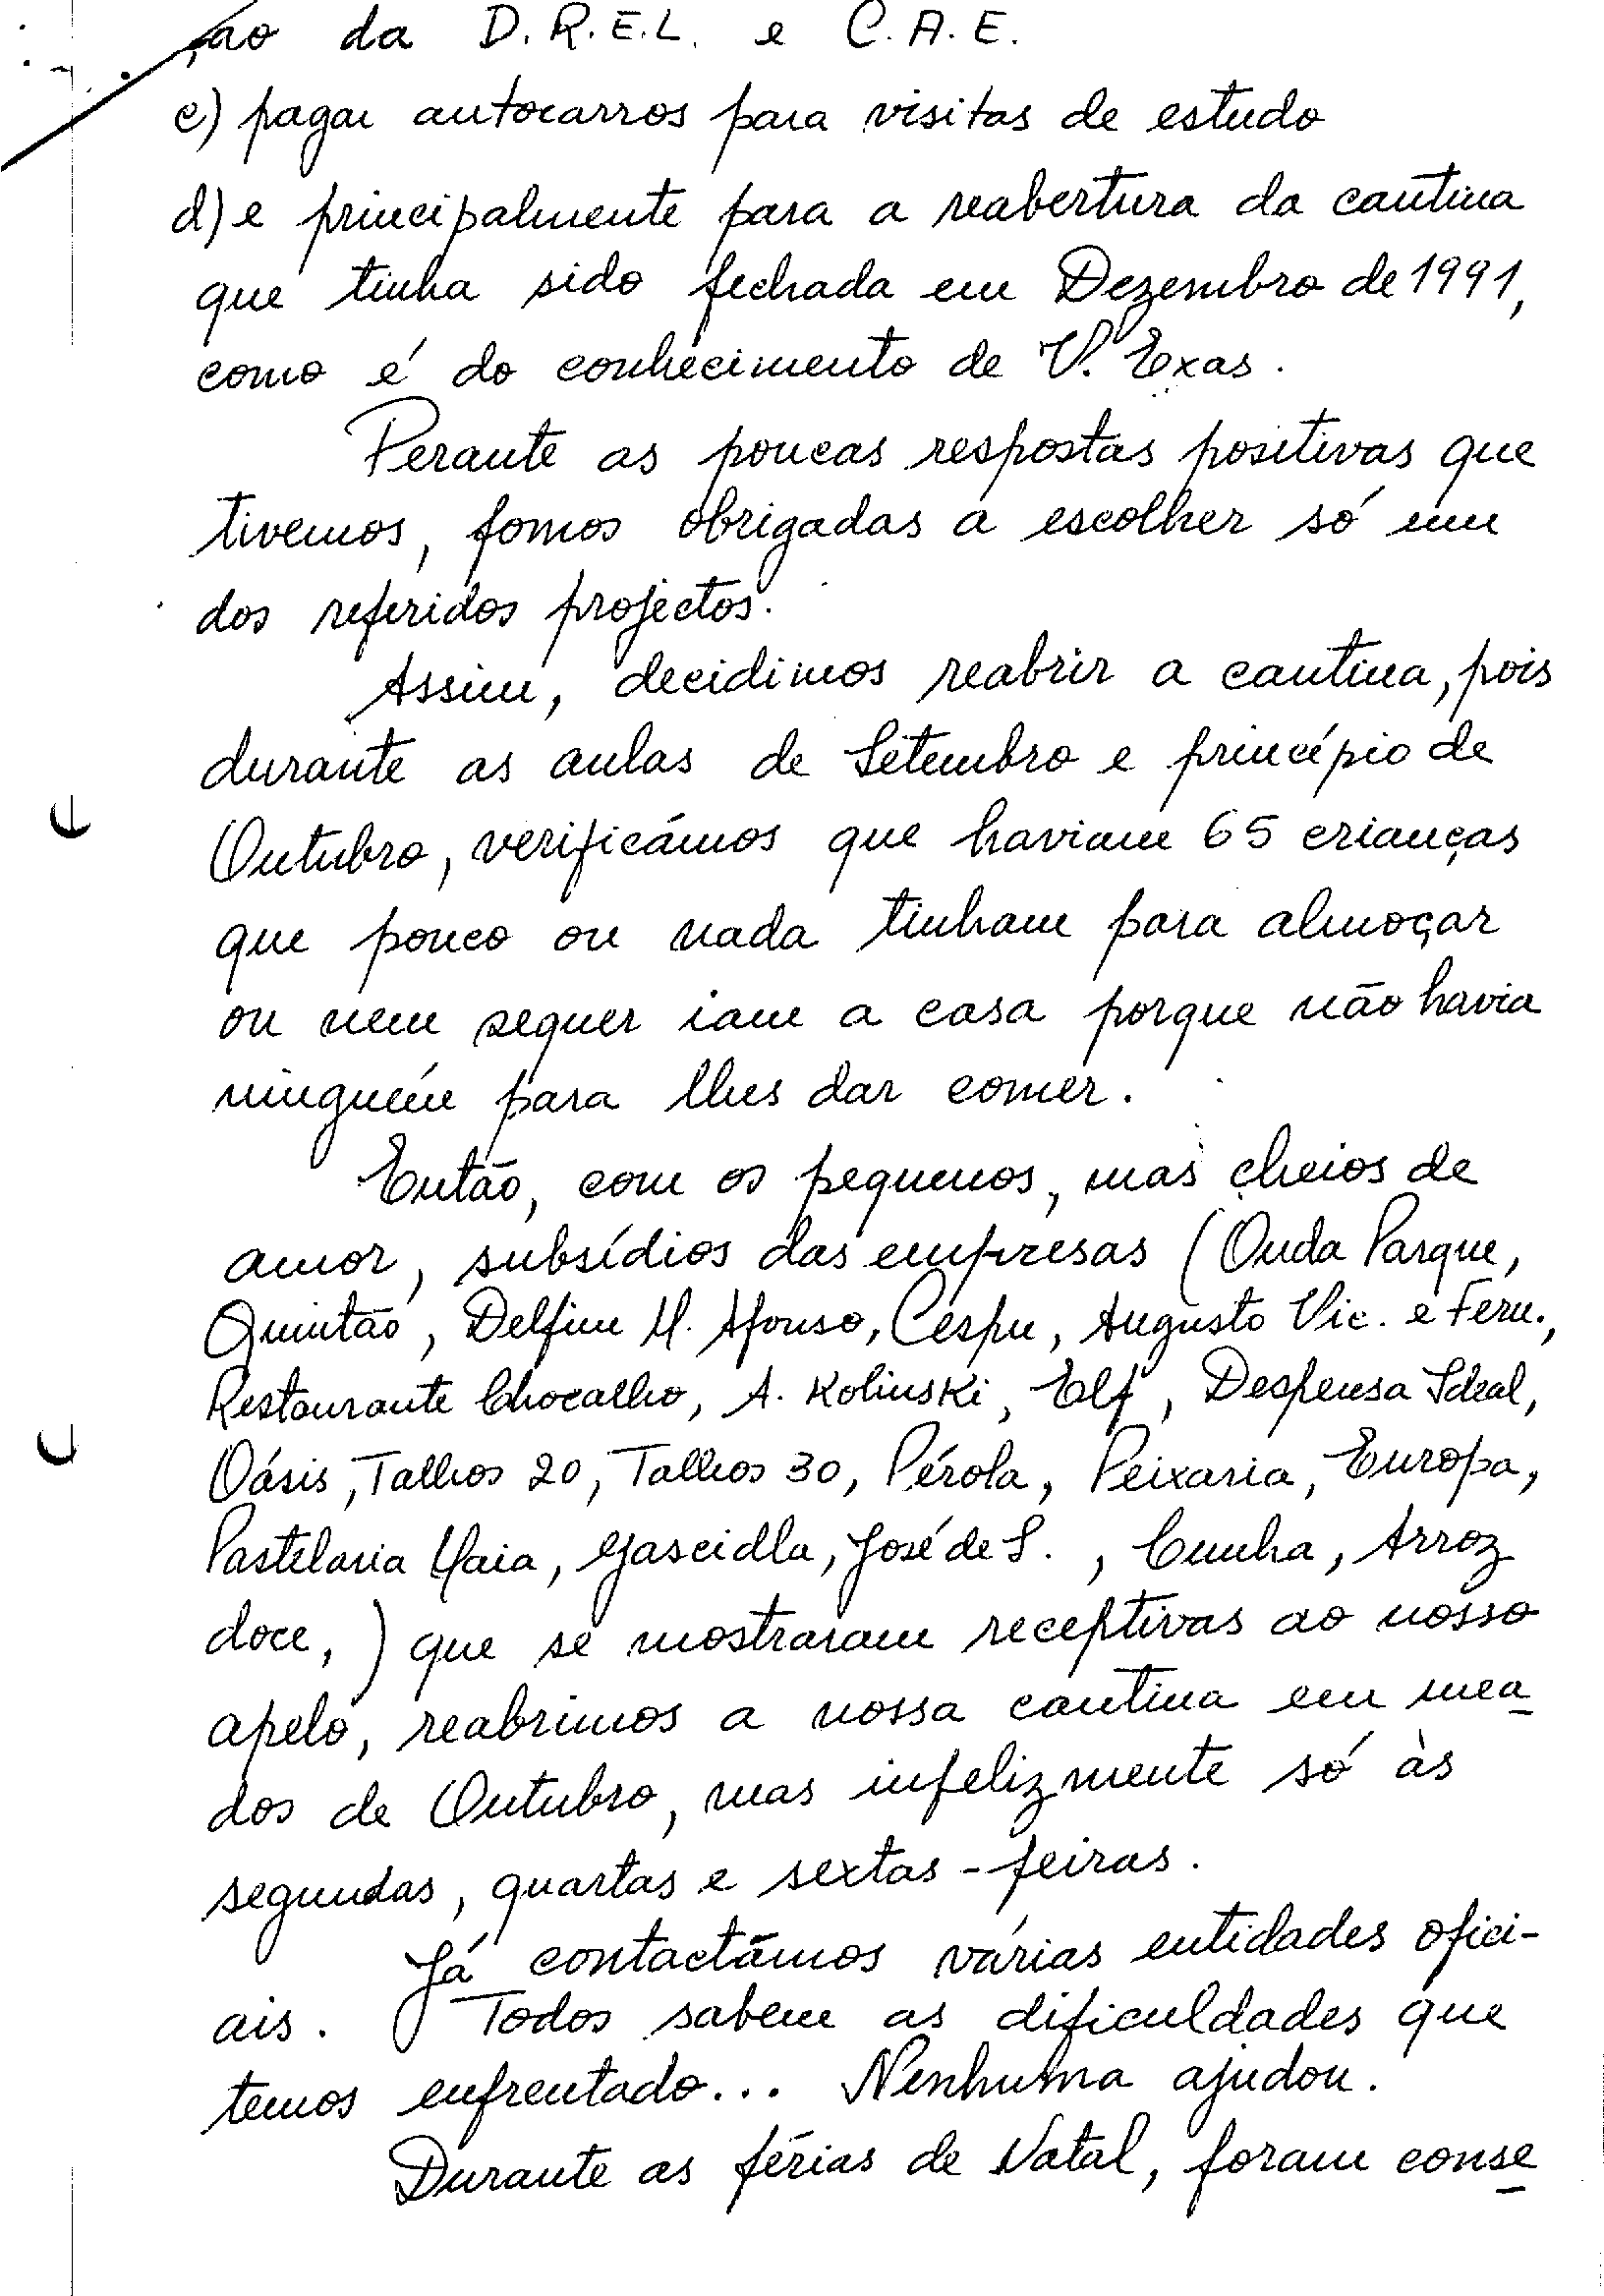 ção da D.R.E.L. e C.A.E.
c) pagar autocarros para visitas de estudo
d) e principalmente para a reabertura da cantina
que tinha sido fechada em Dezembro de 1991,
como é do conhecimento de V. Exas.
Perante as poucas respostas positivas que
tivemos, fomos obrigadas a escolher só um
dos referidos projectos.
Assim, decidimos reabrir a cantina, pois
durante as aulas de Setembro e princípio de
Outubro, verificámos que haviam 65 crianças
que pouco ou nada tinham para almoçar
ou nem sequer iam a casa porque não havia
ninguém para lhes dar comer.
Então, com os pequenos, mas cheios de
amor, subsídios das empresas (Onda Parque,
Quintão, Delfim M. Afonso, Cespu, Augusto Vic. e Fern.,
Restaurante Chocalho, A. Kolinski, Elf, Despensa Ideal,
Oásis, Talhos 20, Talhos 30, Pérola, Peixaria, Europa,
Pastelaria Maia, Gascidla, José de S. , Cunha, Arroz
doce, ) que se mostraram receptivas ao nosso
apelo, reabrimos a nossa cantina em mea
dos de Outubro, mas infelizmente só às
segundas, quartas e sextas-feiras.
Já contactámos várias entidades ofici-
ais. Todos sabem as dificuldades que
temos enfrentado... Nenhuma ajudou.
Durante as férias de Natal, foram conse